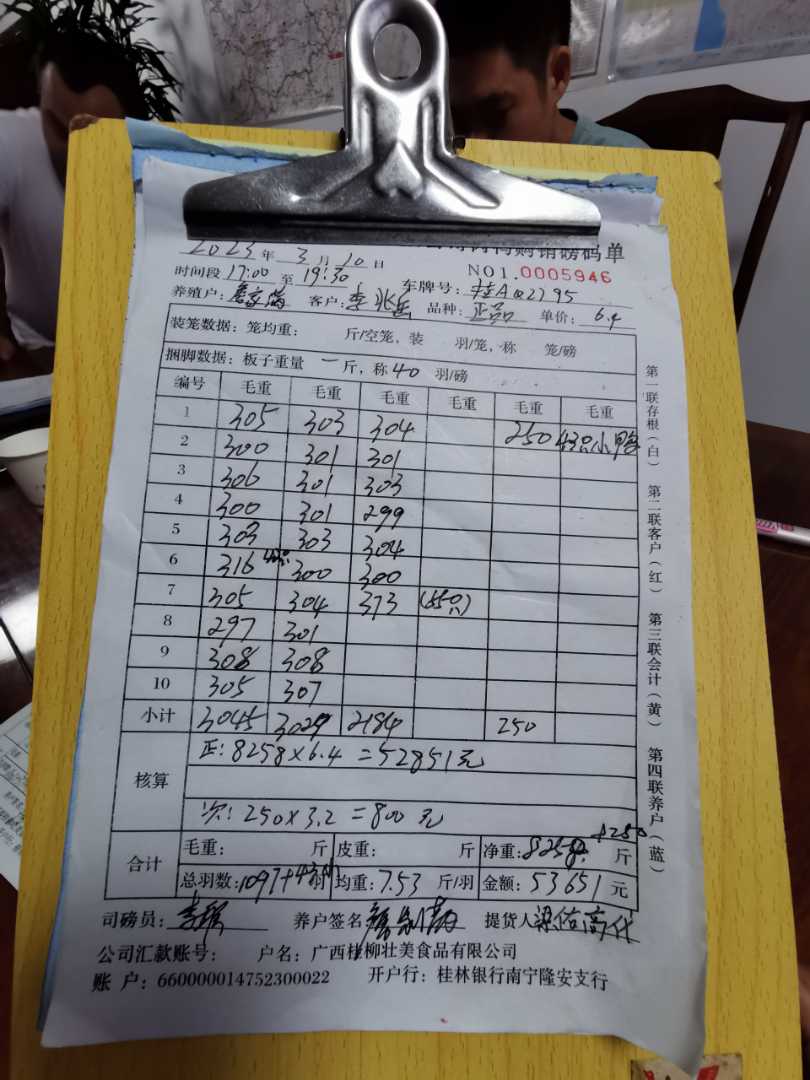 购销磅码单
2023年3月10日
NO1.0005946
时间段17:00至19:30
车牌号:桂A Q2795
养殖户: 客户:李兆岳 品种:正品 单价:6.4
装笼数据:笼均重: 斤/空笼,装 羽/笼,称 笼/磅
捆脚数据:板子重量一斤,称40羽/磅
编号 毛重 毛重 毛重 毛重 毛重 毛重
1 305 303 304 250 43只小
2 300 301 301
3 306 301 303
4 300 301 299
5 303 303 304
6 316 300 300
7 305 304 373 (55只)
8 297 301
9 308 308
10 305 307
小计 3045 3029 2184 250
核算
正:8258×6.4=52851元
次:250×3.2=800元
合计
毛重: 斤 皮重: 斤 净重:8258 +250 斤
总羽数:1097+43羽 均重:7.53斤/羽 金额:53651元
司磅员: 养户签名 提货人
公司汇款账号: 户名:广西桂柳壮美食品有限公司
账 户:660000014752300022 开户行:桂林银行南宁隆安支行
第一联存根(白) 第二联客户(红) 第三联会计(黄) 第四联养户(蓝)